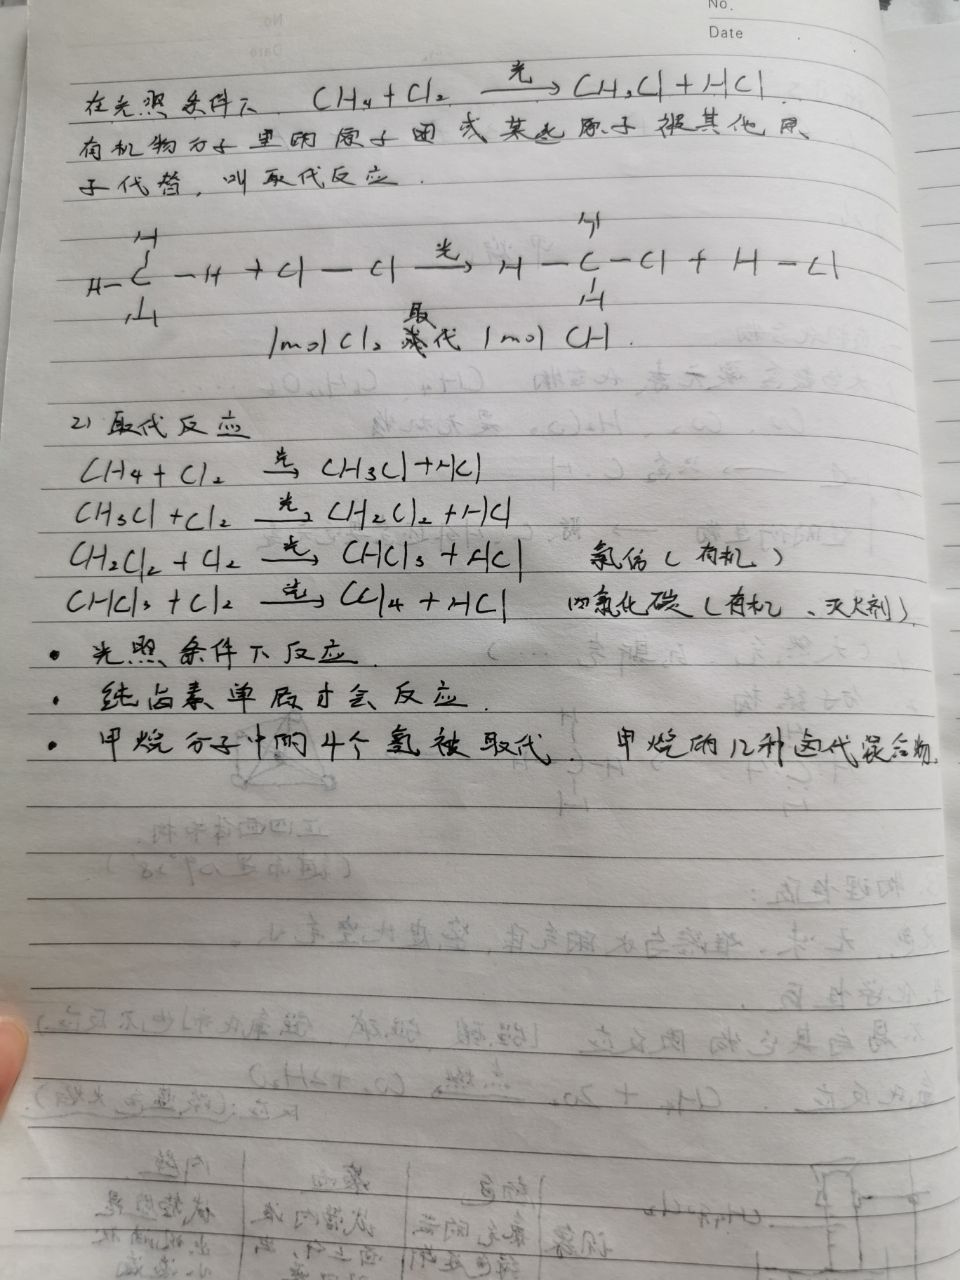 No.
Date
在光照条件下 CH₄+Cl₂ 光→ CH₃Cl+HCl
有机物分子里的原子团或某些原子被其他原
子代替,叫取代反应.
H H
H-C-H + Cl-Cl 光→ H-C-Cl + H-Cl
H H
取
1mol Cl₂ 代 1mol CH.
2) 取代反应
CH4+Cl₂ 光→ CH3Cl+HCl
CH3Cl+Cl₂ 光→ CH2Cl₂+HCl
CH₂Cl₂+Cl₂ 光→ CHCl₃+HCl 氯仿(有机)
CHCl₃+Cl₂ 光→ CCl4+HCl 四氯化碳(有机、灭火剂)
· 光照条件下反应.
· 纯卤素单质才会反应.
· 甲烷分子中的4个氢被取代. 甲烷的12种卤代混合物.